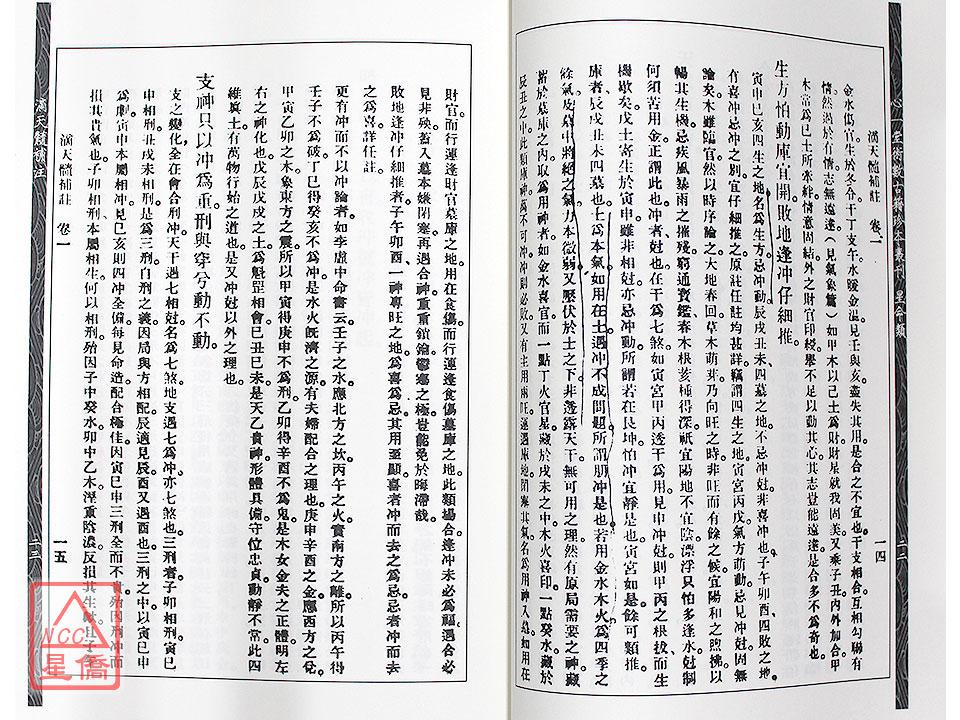 滴天髓補註 卷一
金水傷官生於冬令干丁支午水暖金溫見壬與亥盡失其用是合之不宜也干支相合互相勾聯有
情然過於有情志無遠達(見氣象篇)如甲木以己土為財財星就我固美又乘子丑內外加合甲
木常為己土所牽絆情意固結外之財官印殺舉不足以動其心其志豈能遠達是合多不為奇也
生方怕動庫宜開敗地逢冲仔細推
寅申巳亥四生之地名為生方忌冲動辰戌丑未四墓之地不忌冲尅非喜冲也子午卯酉四敗之地
有喜冲忌冲之別宜仔細推之原註任註均甚詳竊謂四生之地寅宮丙戊氣方萌動忌見冲尅固無
論矣木雖臨官然以時序論之大地春回草木萌芽乃向旺之時非旺而有餘之候宜陽和之煦拂以
暢其生機忌疾風暴雨之摧殘窮通寶鑑春木根荄種得深祇宜陽地不宜陰漂浮只怕多逢水尅制
何須苦用金正謂此也冲者尅也在干為七煞如寅宮甲丙透干為用見申冲尅則甲丙之根拔而生
機歇矣戊土寄生於寅申雖非相尅亦忌冲動所謂若在艮坤怕冲宜靜是也寅宮如是餘可類推
庫者辰戌丑未四墓也土為本氣如用在土遇冲不成問題所謂朋冲是也若用金水木火為四季之
餘氣及墓中將絕之氣力本微弱又壓伏於土之下非透露天干無可用之理然有原局需要之神藏
蓄於墓庫之內取為用神者如金水喜官而一點丁火官星藏於戌未之中木火喜印一點癸水藏於
辰丑之中此類庫神萬不可冲冲則必敗又有主用兩旺運遇庫地閉藏其氣名為用神入墓如用在
一四
財官而行運逢財官墓庫之地用在食傷而行運逢食傷墓庫之地此類場合逢冲未必為福遇合必
見非殃蓋入墓本嫌閉塞再遇合神重重錮鑰鬱塞之極豈能免於晦滯哉
敗地逢冲仔細推者子午卯酉一神專旺之地為喜為忌其用至顯喜者冲而去之為忌忌者冲而去
之為喜詳任註
更有冲而不以冲論者如李虛中命書云壬子之水應北方之坎丙午之火實南方之離所以丙午得
壬子不為破丁巳得癸亥不為冲是水火既濟之源有夫婦配合之理也庚申辛酉之金應西方之兌
甲寅乙卯之木象東方之震所以甲寅得庚申不為刑乙卯得辛酉不為鬼是木女金夫之正體明左
右之神化也戊辰戊戌之土為魁罡相會己丑己未是天乙貴神形體具備守位忠貞動靜不常此四
維真土有萬物行始之道也是又冲尅以外之理也
支神只以冲為重刑與穿兮動不動
支之變化全在會合刑冲天干遇七相尅名為七煞地支遇七為冲亦七煞也三刑者子卯相刑寅巳
申相刑丑戌未相刑是為三刑自刑之義因局與方相配辰適見辰酉又遇酉也三刑之中以寅巳申
為劇寅申本屬相冲見巳亥則四冲全備每見命造配合極佳因寅巳申三刑全而不貴殆因刑冲而
損其貴氣也子卯相刑本屬相生何以相刑殆因子中癸水卯中乙木溼重陰濃反損其生
滴天髓補註 卷一
一五
NCC
星僑